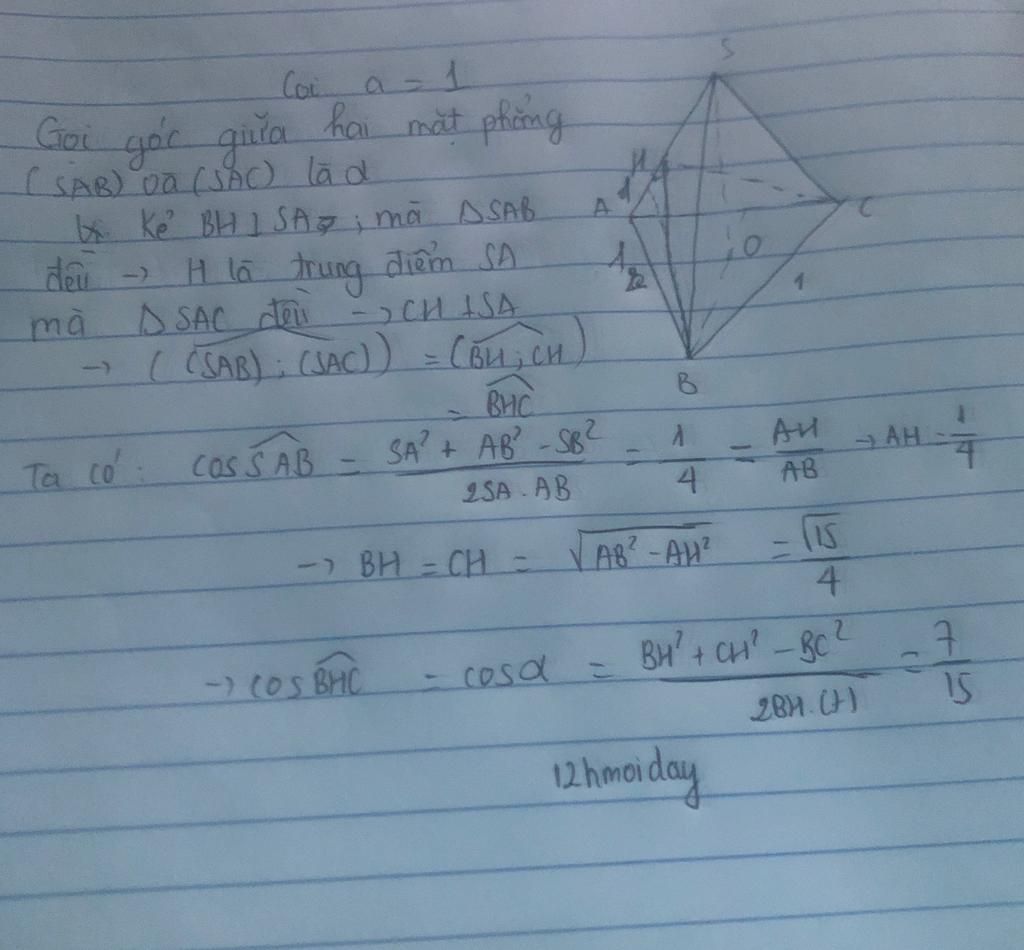 Coi a = 1
Gọi góc giữa hai mặt phẳng
(SAB) và (SAC) là α
Kẻ BH ⊥ SA ; mà ΔSAB
đều → H là trung điểm SA
mà ΔSAC đều → CH ⊥ SA
→ ((SAB) ; (SAC)) = (BH ; CH)
= BHC
Ta có : cos SAB = (SA² + AB² - SB²) / (2SA . AB) = 1/4 = AH/AB → AH = 1/4
→ BH = CH = √(AB² - AH²) = √15/4
→ cos BHC = cos α = (BH² + CH² - BC²) / (2BH . CH) = 7/15
12hmoiday
S
H
1
A
C
O
1
1
B